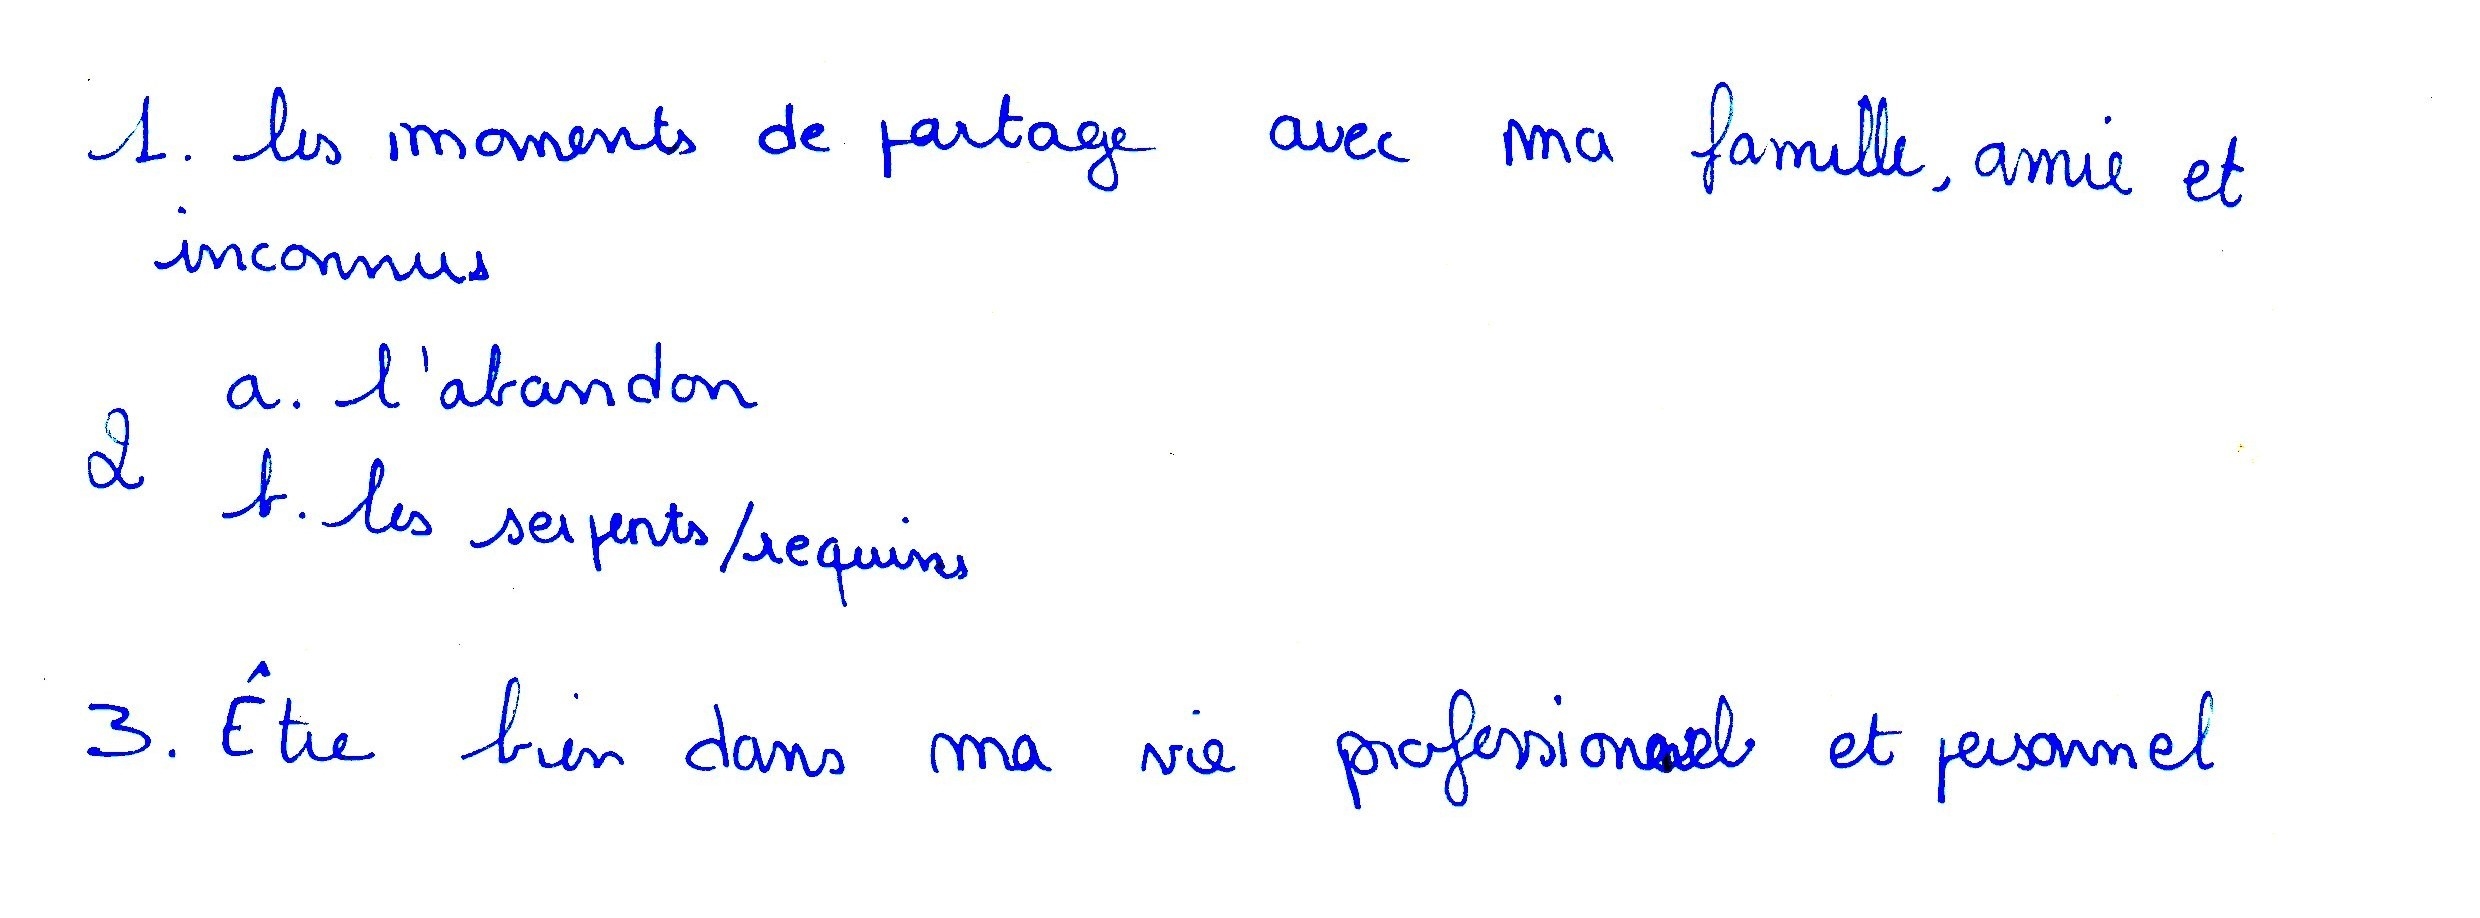 1. les moments de partage avec ma famille, amie et
inconnus
a. l'abandon
2
b. les serpents/requins
3. Être bien dans ma vie professionnel et personnel